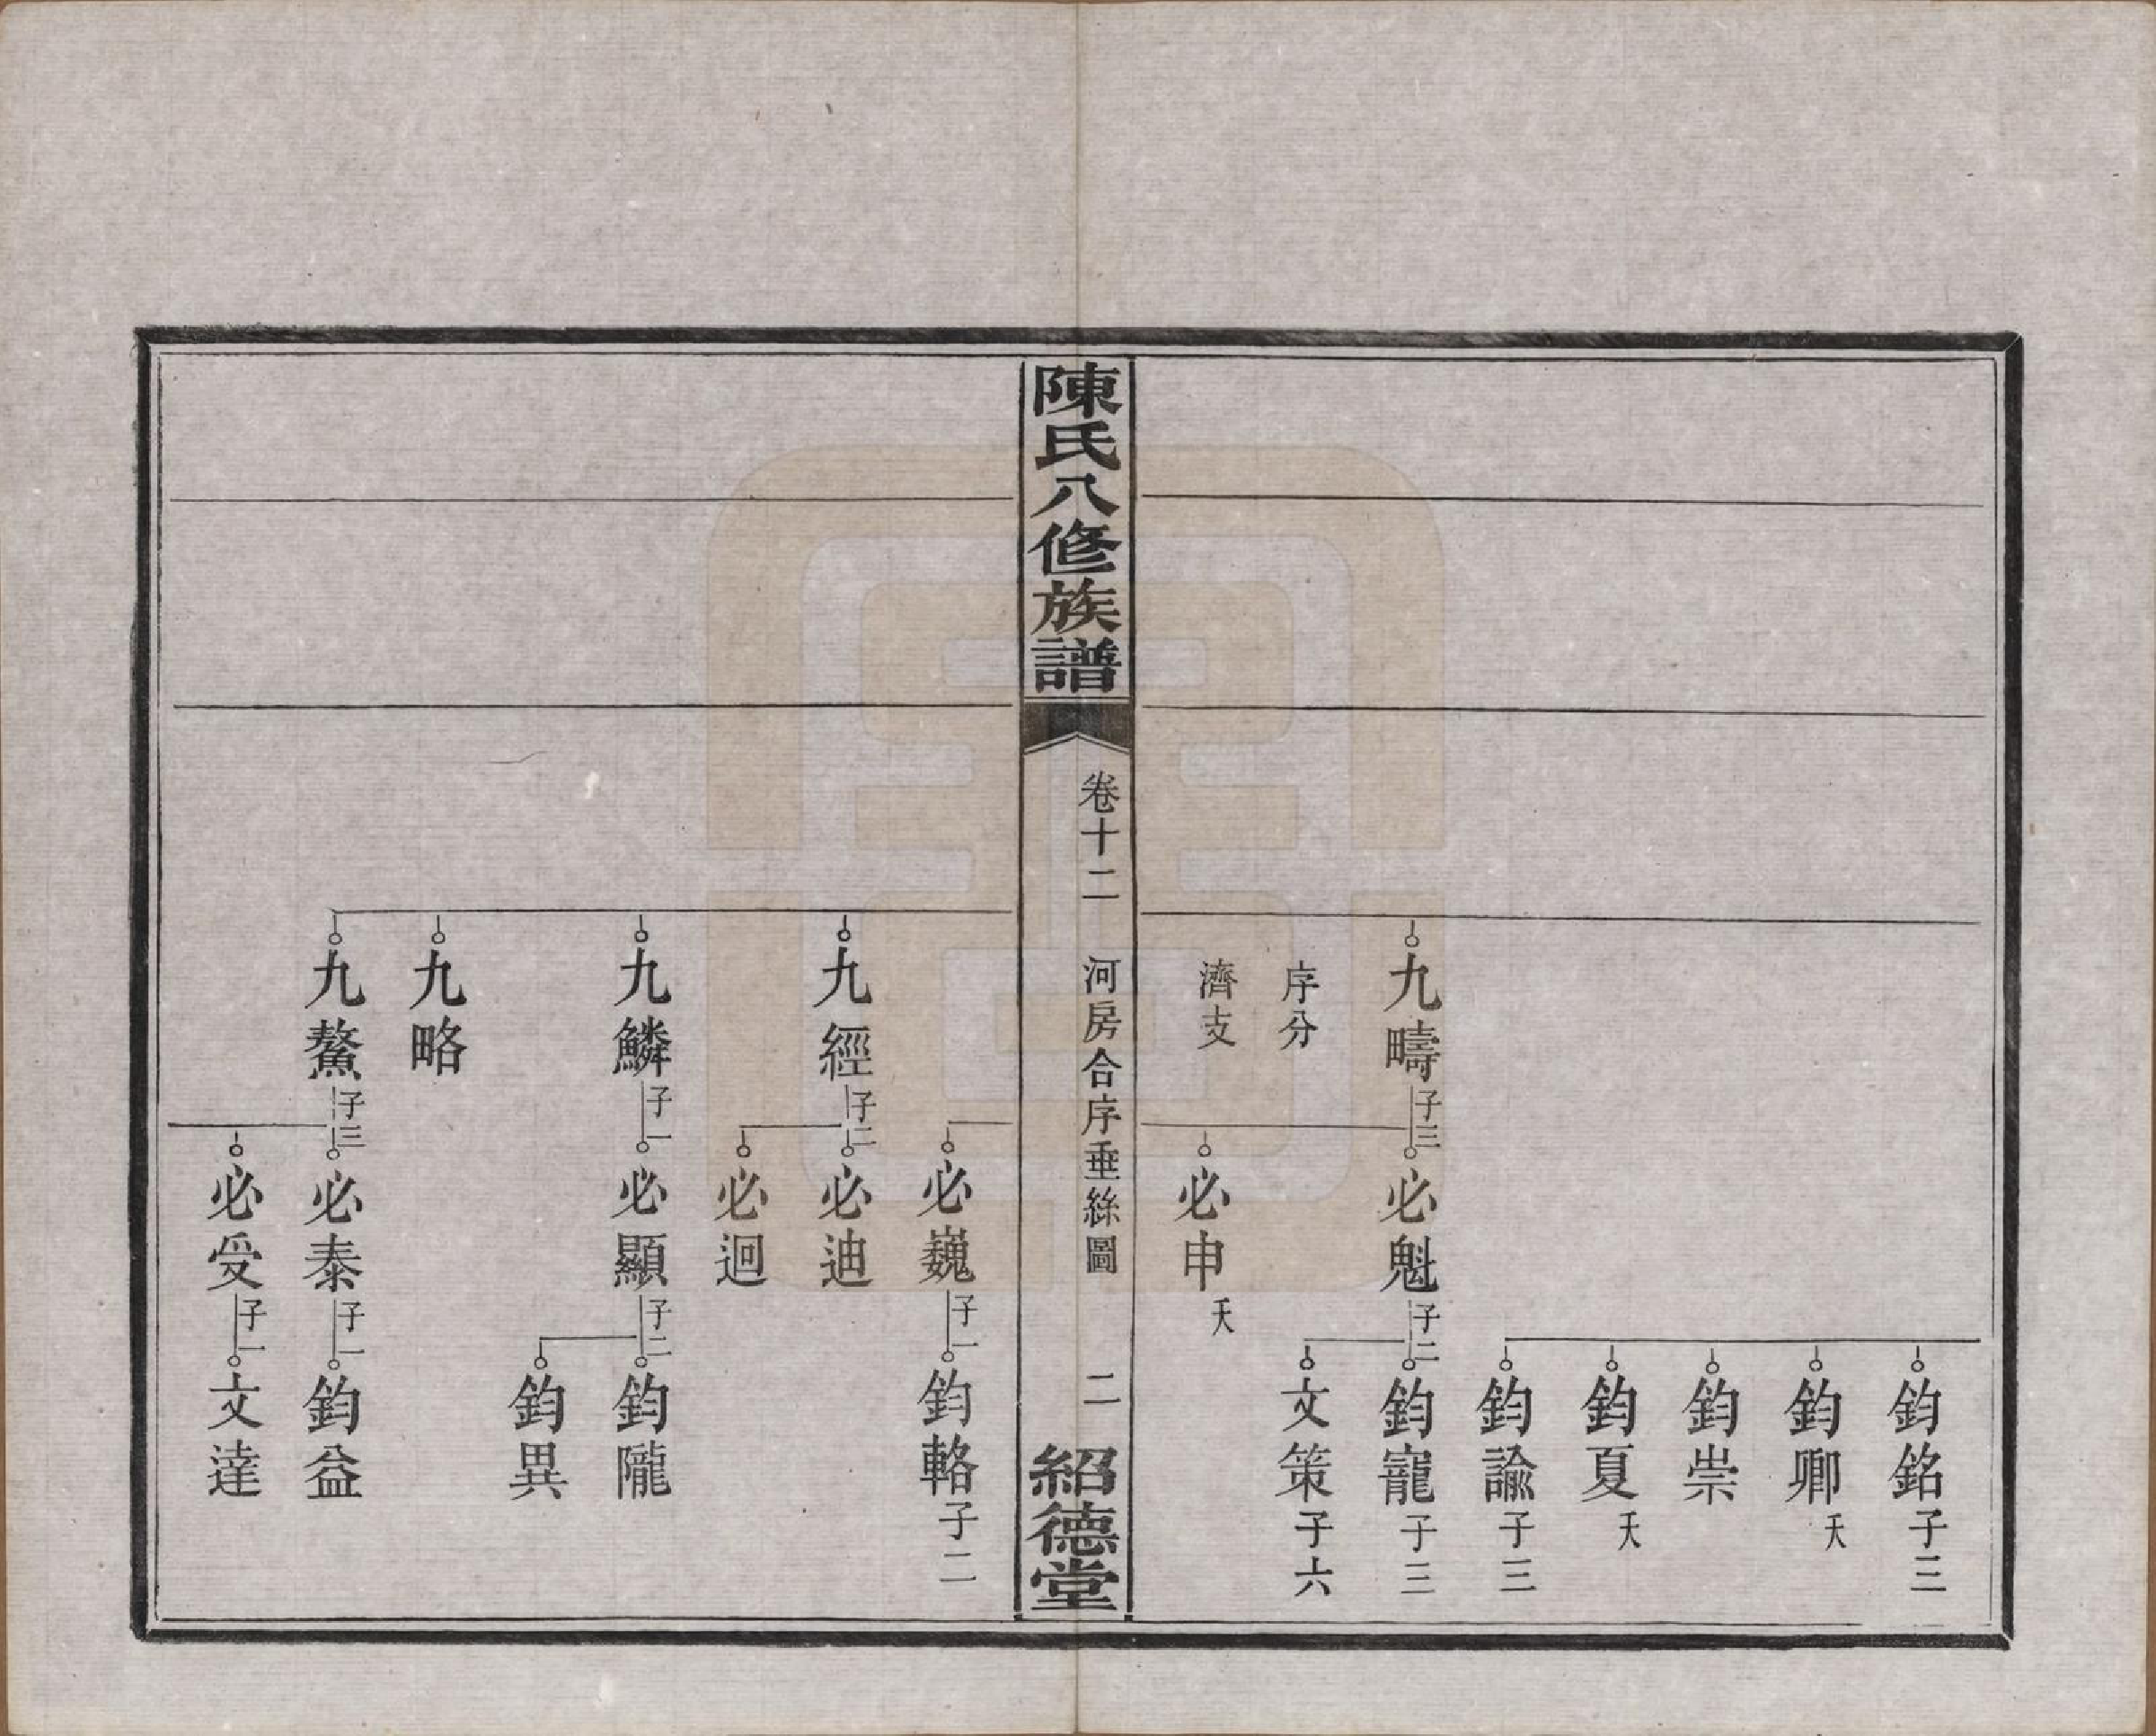 鈞銘子三
鈞卿夭
鈞崇
鈞夏夭
鈞諭子三
九疇子三必魁子二鈞寵子三
序分
文策子六
濟支
必申夭
陳氏八修族譜
卷十二 河房合序垂絲圖 二
紹德堂
必巍子一鈞輅子二
九經子二必迪
必迴
九鱗子一必顯子二鈞隴
鈞異
九略
九鰲子三必泰子一鈞益
必受子一文達